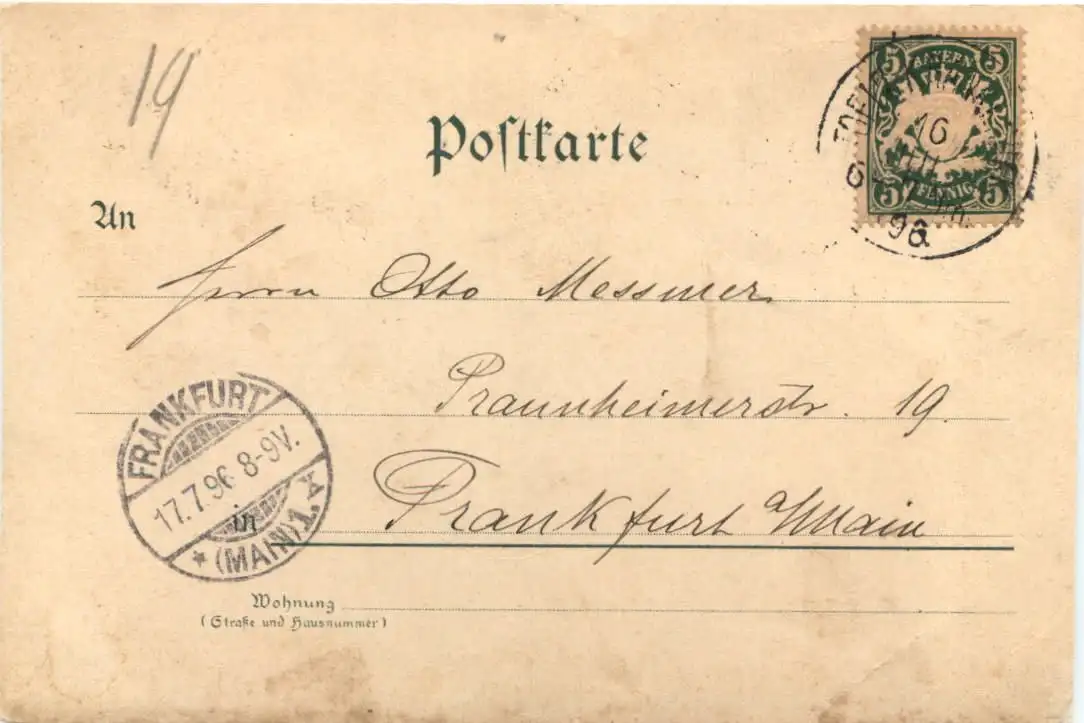 19
Postkarte
5 BAYERN 5
5 PFENNIG 5
16
96
An
Herrn Otto Messmer
Praunheimerstr. 19
FRANKFURT
17.7.96 8-9V.
* (MAIN) 1. A
in Frankfurt a/Main
Wohnung
(Straße und Hausnummer)